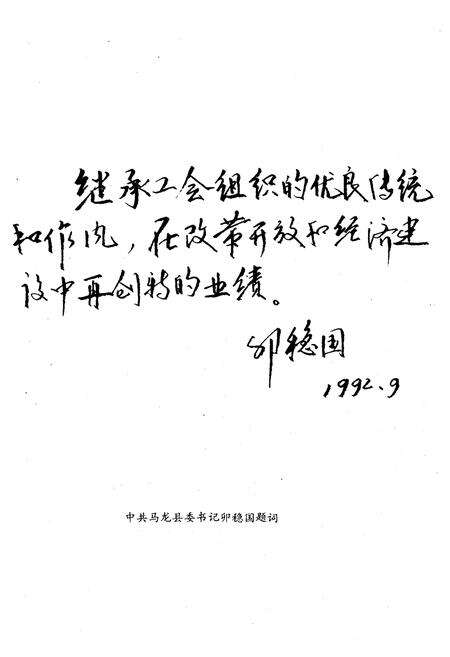 继承工会组织的优良传统
和作风，在改革开放和经济建
设中再创新的业绩。
卯稳国
1992.9
中共马龙县委书记卯稳国题词